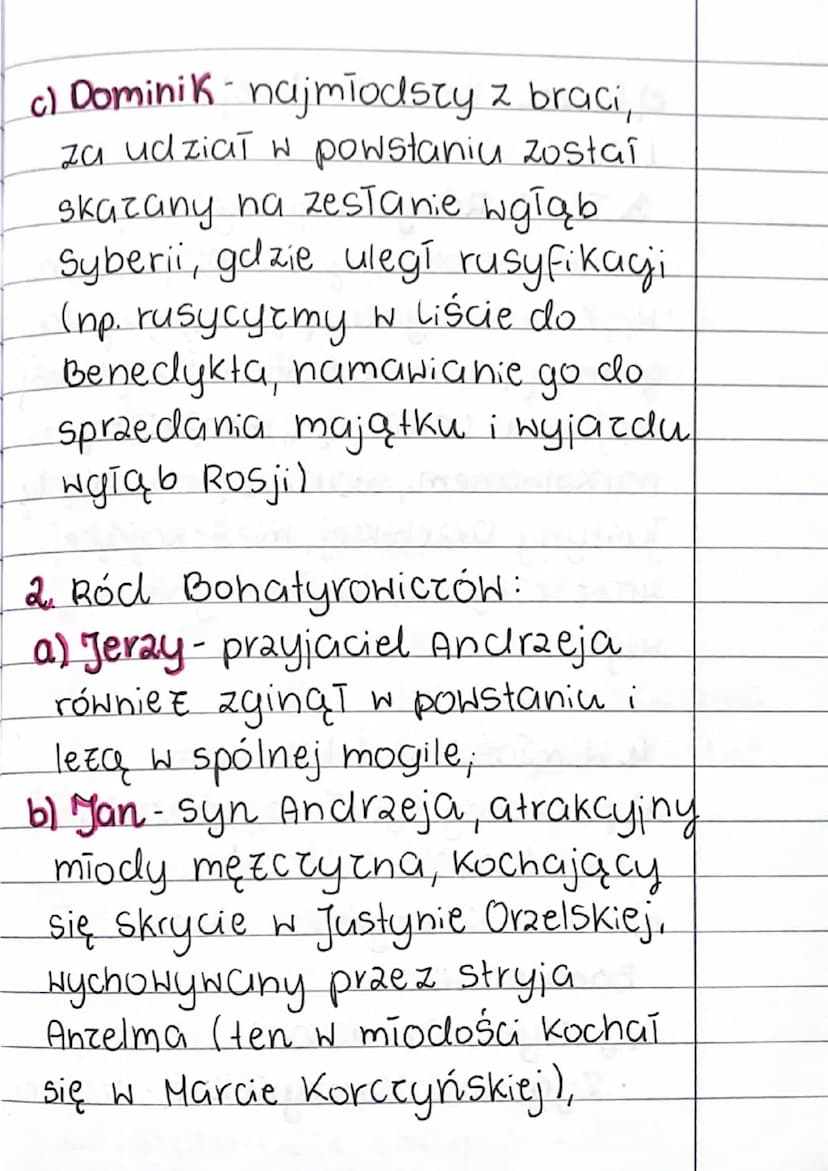 c) Dominik - najmłodszy z braci,
za udział w powstaniu został
skazany na zesłanie wgłąb
Syberii, gdzie uległ rusyfikacji
(np. rusycyzmy w liście do
Benedykta, namawianie go do
sprzedania majątku i wyjazdu
wgłąb Rosji)
2. Ród Bohatyrowiczów:
a) Jerzy - przyjaciel Andrzeja
również zginął w powstaniu i
leżą w spólnej mogile;
b) Jan - syn Andrzeja, atrakcyjny
młody mężczyzna, kochający
się skrycie w Justynie Orzelskiej,
wychowywany przez stryja
Anzelma (ten w młodości kochał
się w Marcie Korczyńskiej),